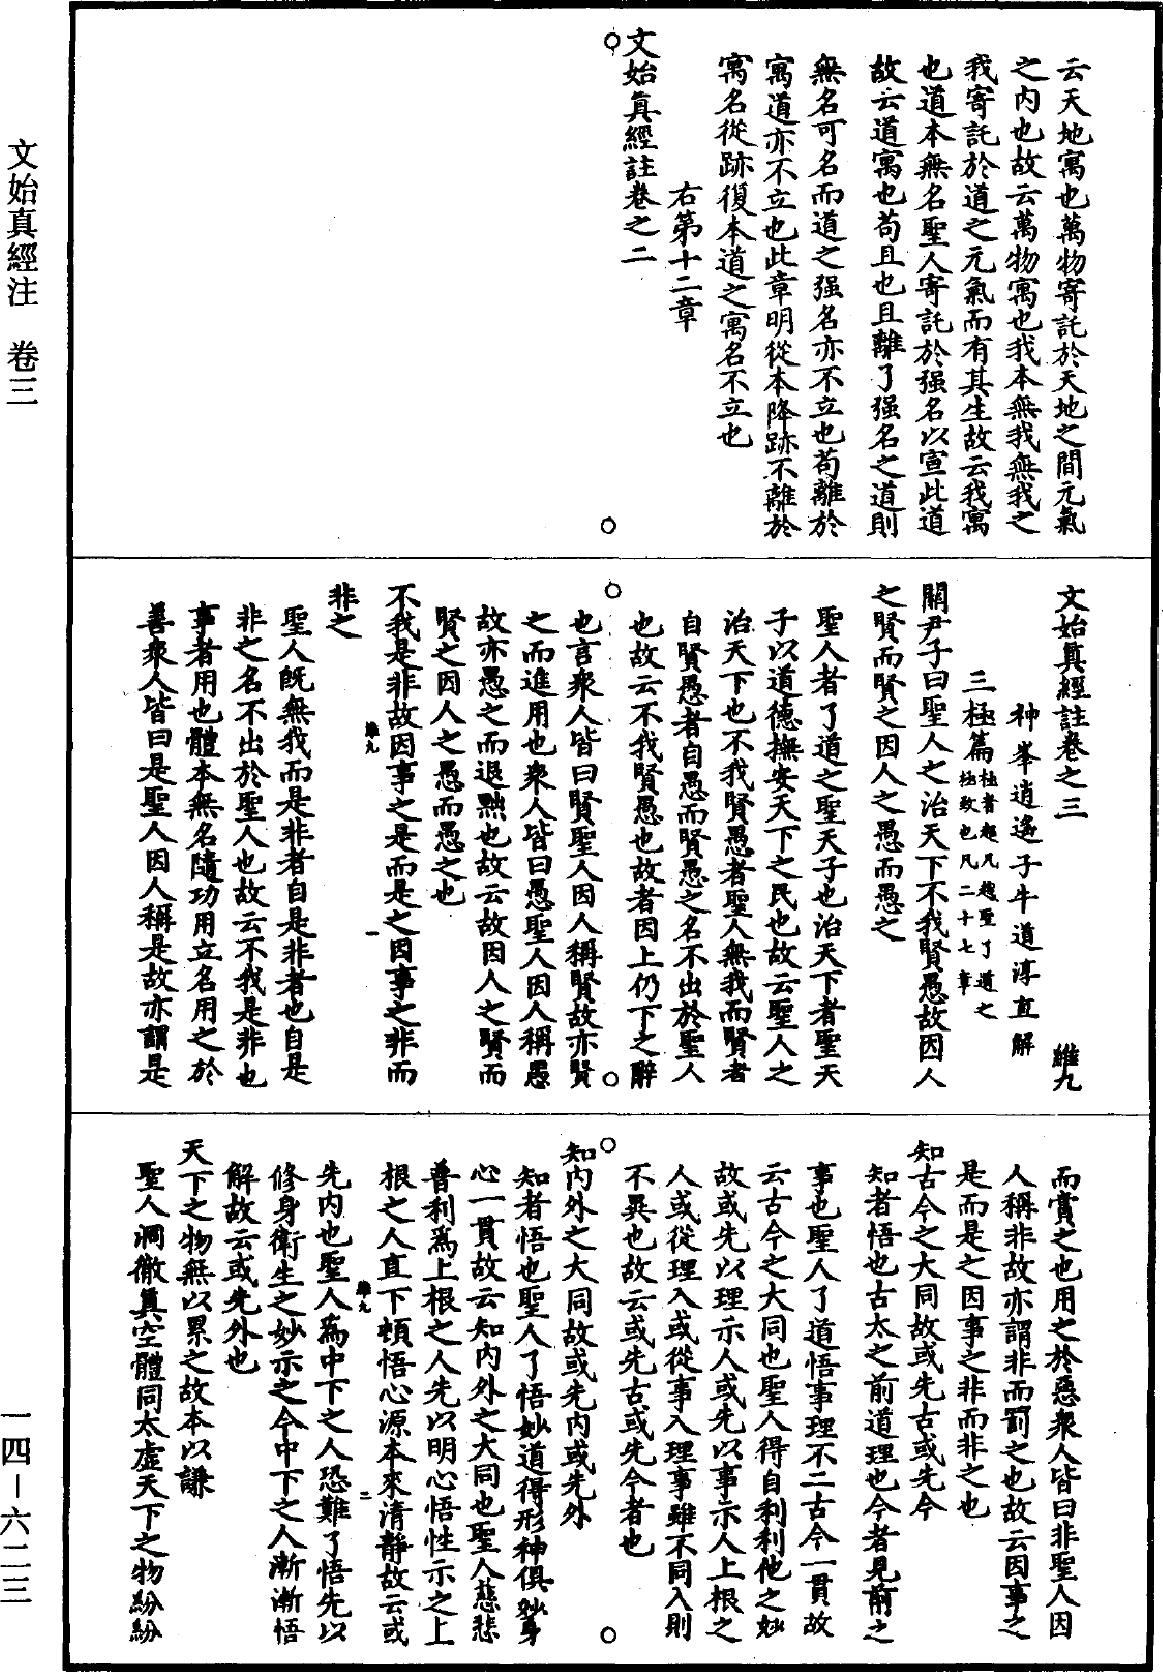 文始真經注　卷三
一四－六二三
云天地寓也萬物寄託於天地之間元氣
之内也故云萬物寓也我本無我無我之
我寄託於道之元氣而有其生故云我寓
也道本無名聖人寄託於强名以宣此道
故云道寓也苟且也且離了强名之道則
無名可名而道之强名亦不立也苟離於
寓道亦不立也此章明從本降跡不離於
寓名從跡復本道之寓名不立也
右第十二章
文始真經註卷之二
文始真經註卷之三　維九
神峯逍遙子牛道淳直解
三極篇極者超凡趍聖了道之
極致也凡二十七章
關尹子曰聖人之治天下不我賢愚故因人
之賢而賢之因人之愚而愚之
聖人者了道之聖天子也治天下者聖天
子以道德撫安天下之民也故云聖人之
治天下也不我賢愚者聖人無我而賢者
自賢愚者自愚而賢愚之名不出於聖人
也故云不我賢愚也故者因上仍下之辭
也言衆人皆曰賢聖人因人稱賢故亦賢
之而進用也衆人皆曰愚聖人因人稱愚
故亦愚之而退黜也故云故因人之賢而
賢之因人之愚而愚之也
不我是非故因事之是而是之因事之非而
非之
維九　一
聖人既無我而是非者自是非者也自是
非之名不出於聖人也故云不我是非也
事者用也體本無名隨功用立名用之於
善衆人皆曰是聖人因人稱是故亦謂是
而賞之也用之於惡衆人皆曰非聖人因
人稱非故亦謂非而罰之也故云因事之
是而是之因事之非而非之也
知古今之大同故或先古或先今
知者悟也古太之前道理也今者見前之
事也聖人了道悟事理不二古今一貫故
云古今之大同也聖人得自利利他之妙
故或先以理示人或先以事示人上根之
人或從理入或從事入理事雖不同入則
不異也故云或先古或先今者也
知内外之大同故或先内或先外
知者悟也聖人了悟妙道得形神俱妙身
心一貫故云知内外之大同也聖人慈悲
普利為上根之人先以明心悟性示之上
根之人直下頓悟心源本來清静故云或
維九　二
先内也聖人為中下之人恐難了悟先以
修身衛生之妙示之令中下之人漸漸悟
解故云或先外也
天下之物無以累之故本以謙
聖人洞徹真空體同太虛天下之物紛紛